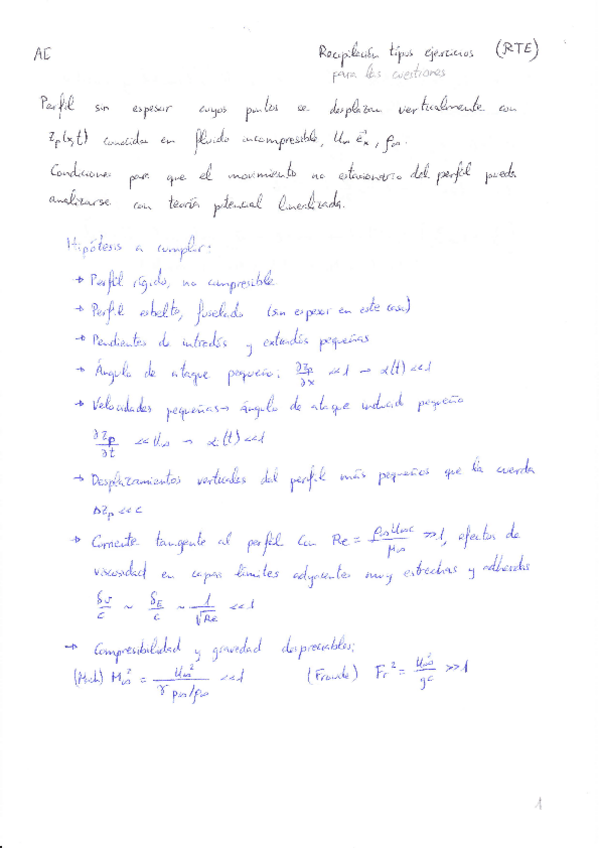 AE
Recopilación tipos ejercicios (RTE)
para las cuestiones
Perfil sin espesor cuyos puntos se desplazan verticalmente con
Zp(x,t) conocida en fluido incompresible, U∞ e⃗x, ρ∞.
Condiciones para que el movimiento no estacionario del perfil pueda
analizarse con teoría potencial linealizada.
Hipótesis a cumplir:
→ Perfil rígido, no compresible
→ Perfil esbelto, fuselado (sin espesor en este caso)
→ Pendientes de intradós y extradós pequeñas
→ Ángulo de ataque pequeño: ∂Zp/∂x <<1 → α(t) <<1
→ Velocidades pequeñas → ángulo de ataque inducido pequeño
∂Zp/∂t << U∞ → α(t) <<1
→ Desplazamientos verticales del perfil más pequeños que la cuerda
ΔZp << c
→ Corriente tangente al perfil con Re = ρ∞U∞c/μ∞ >>1, efectos de
viscosidad en capas límites adyacentes muy estrechas y adheridas
δv/c ~ δE/c ~ 1/√Re <<1
→ Compresibilidad y gravedad despreciables:
(Mach) M∞² = U∞²/(γ p∞/ρ∞) <<1 (Froude) Fr² = U∞²/gc >>1
1